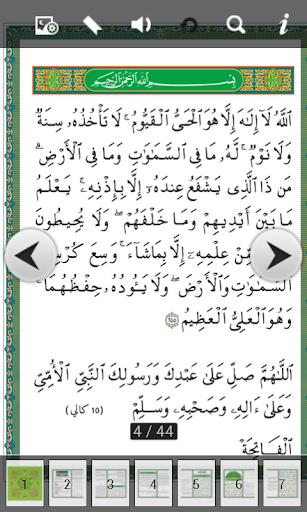 بِسْمِ ٱللَّهِ ٱلرَّحْمَٰنِ ٱلرَّحِيمِ
ٱللَّهُ لَآ إِلَٰهَ إِلَّا هُوَ ٱلْحَىُّ ٱلْقَيُّومُ ۚ لَا تَأْخُذُهُۥ سِنَةٌ
وَلَا نَوْمٌ ۚ لَّهُۥ مَا فِى ٱلسَّمَٰوَٰتِ وَمَا فِى ٱلْأَرْضِ ۗ
مَن ذَا ٱلَّذِى يَشْفَعُ عِندَهُۥٓ إِلَّا بِإِذْنِهِۦ ۚ يَعْلَمُ
مَا بَيْنَ أَيْدِيهِمْ وَمَا خَلْفَهُمْ ۖ وَلَا يُحِيطُونَ
مِّنْ عِلْمِهِۦٓ إِلَّا بِمَا شَآءَ ۚ وَسِعَ كُرْسِ
ٱلسَّمَٰوَٰتِ وَٱلْأَرْضَ ۖ وَلَا يَـُٔودُهُۥ حِفْظُهُمَا ۚ
وَهُوَ ٱلْعَلِىُّ ٱلْعَظِيمُ ٢٥٥
ٱللَّهُمَّ صَلِّ عَلَىٰ عَبْدِكَ وَرَسُولِكَ ٱلنَّبِىِّ ٱلْأُمِّىِّ
وَعَلَىٰٓ ءَالِهِۦ وَصَحْبِهِۦ وَسَلِّمْ (10 كالي)
4 / 44
ٱلْفَاتِحَةْ
1 2 3 4 5 6 7